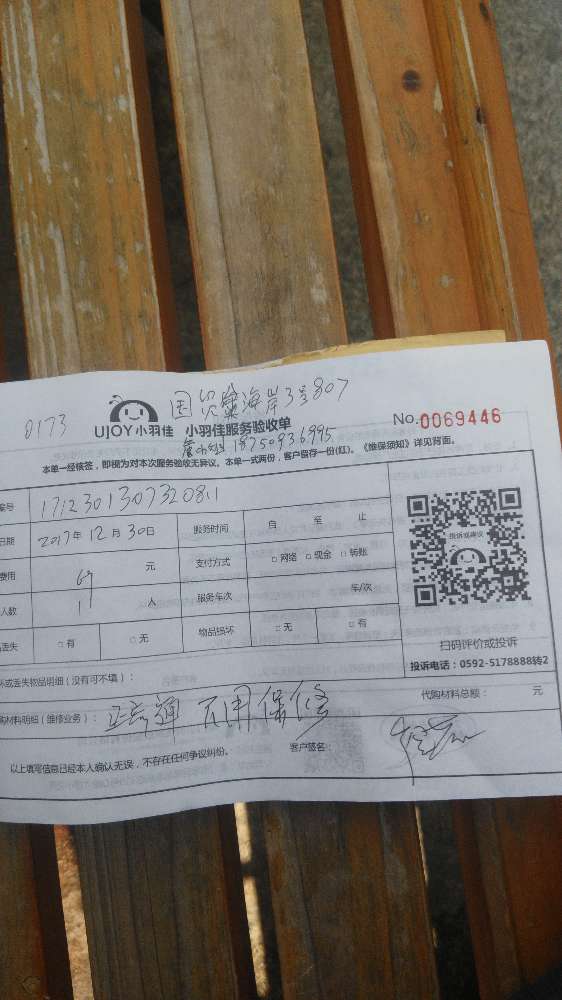 国贸蓝海岸3号807
0173
UJOY小羽佳 小羽佳服务验收单 No.0069446
18750936995
本单一经核签，即视为对本次服务验收无异议。本单一式两份，客户留存一份(红)。《维保须知》详见背面。
编号 1712301307320811
日期 2017年12月30日 服务时间 自 至 止
费用 元 支付方式 □网络 □现金 □转账
人数 1 人 服务车次 车/次
丢失 □有 □无 物品损坏 □无 □有
投诉或建议
扫码评价或投诉
投诉电话：0592-5178888转2
坏或丢失物品明细（没有可不填）：
购材料明细（维修业务）： 不用保修 代购材料总额： 元
以上填写信息已经本人确认无误，不存在任何争议纠纷。 客户签名：